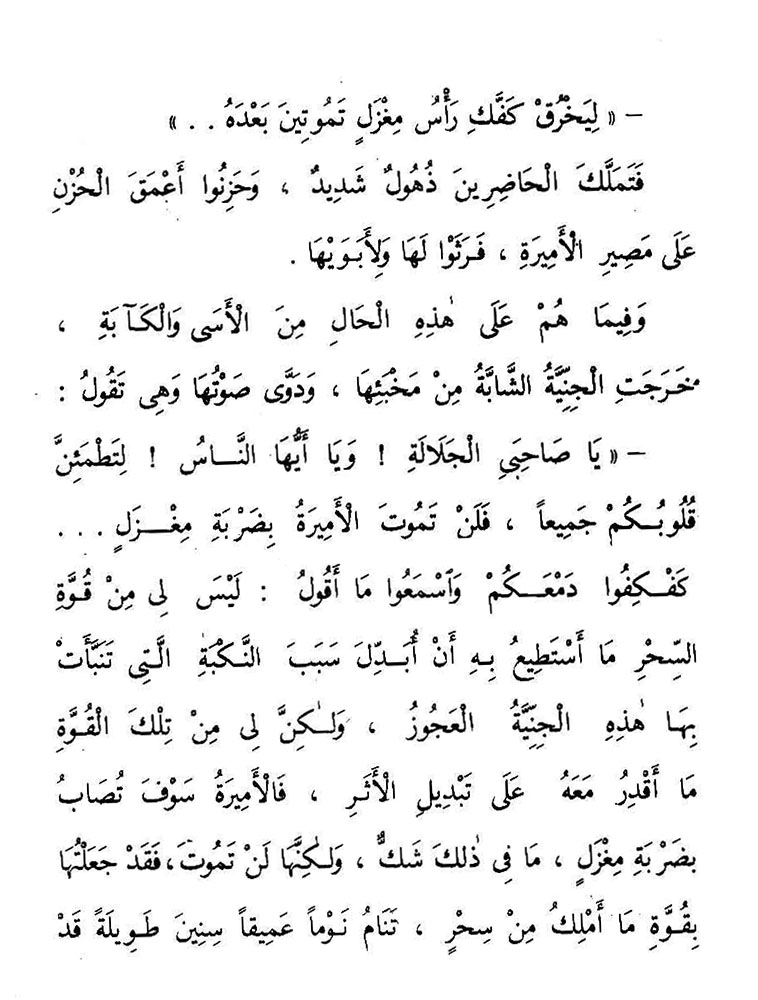 – « لِيَخْرُقْ كَفَّكِ رَأْسُ مِغْزَلٍ تَمُوتِينَ بَعْدَهُ . . »
فَتَمَلَّكَ الْحَاضِرِينَ ذُهُولٌ شَدِيدٌ ، وَحَزِنُوا أَعْمَقَ الْحُزْنِ
عَلَى مَصِيرِ الْأَمِيرَةِ ، فَرَثَوْا لَهَا وَلِأَبَوَيْهَا .
وَفِيمَا هُمْ عَلَى هٰذِهِ الْحَالِ مِنَ الْأَسَى وَالْكَآبَةِ ،
خَرَجَتِ الْجِنِّيَّةُ الشَّابَّةُ مِنْ مَخْبَئِهَا ، وَدَوَّى صَوْتُهَا وَهِىَ تَقُولُ :
– « يَا صَاحِبَىِ الْجَلَالَةِ ! وَيَا أَيُّهَا النَّــاسُ ! لِتَطْمَئِنَّ
قُلُوبُــكُمْ جَمِيعاً ، فَلَنْ تَمُوتَ الْأَمِيرَةُ بِضَرْبَةِ مِغْــزَلٍ . . .
كَفْــكِفُوا دَمْعَــكُمْ وَٱسْمَعُوا مَا أَقُولُ : لَيْسَ لِى مِنْ قُــوَّةِ
السِّحْرِ مَا أَسْتَطِيعُ بِــهِ أَنْ أُبَــدِّلَ سَبَبَ النَّــكْبَةِ الَّتِى تَنَبَّأَتْ
بِهَـا هٰذِهِ الْجِنِّيَّةُ الْعَجُوزُ ، وَلٰــكِنَّ لِى مِنْ تِلْكَ الْقُــوَّةِ
مَا أَقْدِرُ مَعَهُ عَلَى تَبْدِيلِ الْأَثَرِ ، فَالْأَمِيرَةُ سَوْفَ تُصَابُ
بِضَرْبَةِ مِغْزَلٍ ، مَا فِى ذٰلكَ شَكٌّ ، وَلٰكِنَّهَا لَنْ تَمُوتَ ، فَقَدْ جَعَلْتُهَا
بِقُــوَّةِ مَا أَمْلِكُ مِنْ سِحْرٍ ، تَنَامُ نَــوْماً عَمِيقاً سِنِينَ طَــوِيلَةً قَدْ